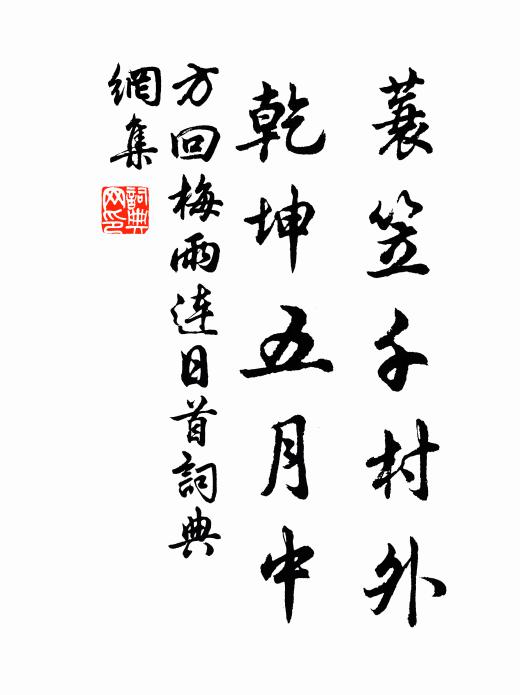 蓑笠千村外
乾坤五月中
方回梅雨連日首詞典
網集
詞典
网印